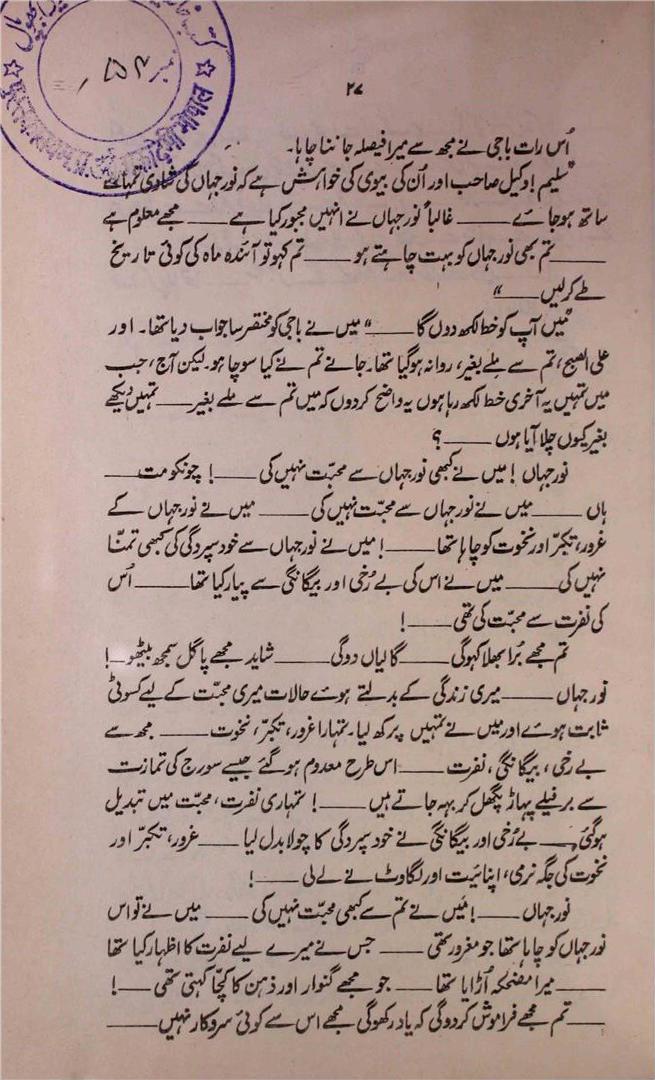 ۲۷
نمبر ۷۵۴
اُس رات باجی نے مجھ سے میرا فیصلہ جاننا چاہا۔
"سلیم! وکیل صاحب اور اُن کی بیوی کی خواہش ہے کہ نور جہاں کی شادی تمہارے
ساتھ ہو جائے —— غالباً نور جہاں نے انہیں مجبور کیا ہے —— مجھے معلوم ہے
—— تم بھی نور جہاں کو بہت چاہتے ہو —— تم کہو تو آئندہ ماہ کی کوئی تاریخ
طے کر لیں ——"
"میں آپ کو خط لکھ دوں گا ——" میں نے باجی کو مختصر سا جواب دیا تھا۔ اور
علی الصبح، تم سے ملے بغیر، روانہ ہو گیا تھا۔ جانے تم نے کیا سوچا ہو۔ لیکن آج، جب
میں تمہیں یہ آخری خط لکھ رہا ہوں یہ واضح کر دوں کہ میں تم سے ملے بغیر —— تمہیں دیکھے
بغیر کیوں چلا آیا ہوں ——؟
نور جہاں! میں نے کبھی نور جہاں سے محبّت نہیں کی ——! چونکو مت ——
ہاں —— میں نے نور جہاں سے محبّت نہیں کی —— میں نے نور جہاں کے
غرور، تکبّر اور نخوت کو چاہا تھا ——! میں نے نور جہاں سے خود سپردگی کی کبھی تمنّا
نہیں کی —— میں نے اس کی بے رُخی اور بیگانگی سے پیار کیا تھا —— اُس
کی نفرت سے محبّت کی تھی ——!
تم مجھے بُرا بھلا کہو گی —— گالیاں دو گی —— شاید مجھے پاگل سمجھ بیٹھو ——!
نور جہاں —— میری زندگی کے بدلتے ہوئے حالات میری محبّت کے لیے کسوٹی
ثابت ہوئے اور میں نے تمہیں پرکھ لیا۔ تمہارا غرور، تکبّر، نخوت —— مجھ سے
بے رخی، بیگانگی، نفرت —— اس طرح معدوم ہو گئے جیسے سورج کی تمازت
سے برفیلے پہاڑ پگھل کر بہہ جاتے ہیں ——! تمہاری نفرت، محبّت میں تبدیل
ہو گئی —— بے رُخی اور بیگانگی نے خود سپردگی کا چولا بدل لیا —— غرور، تکبّر اور
نخوت کی جگہ نرمی، اپنائیت اور لگاوٹ نے لے لی ——!
نور جہاں ——! میں نے تم سے کبھی محبّت نہیں کی —— میں نے تو اس
نور جہاں کو چاہا تھا جو مغرور تھی —— جس نے میرے لیے نفرت کا اظہار کیا تھا
—— میرا مضحکہ اُڑایا تھا —— جو مجھے گنوار اور ذہن کا کچّا کہتی تھی ——!
—— تم مجھے فراموش کر دو گی کہ یاد رکھو گی مجھے اس سے کوئی سروکار نہیں ——